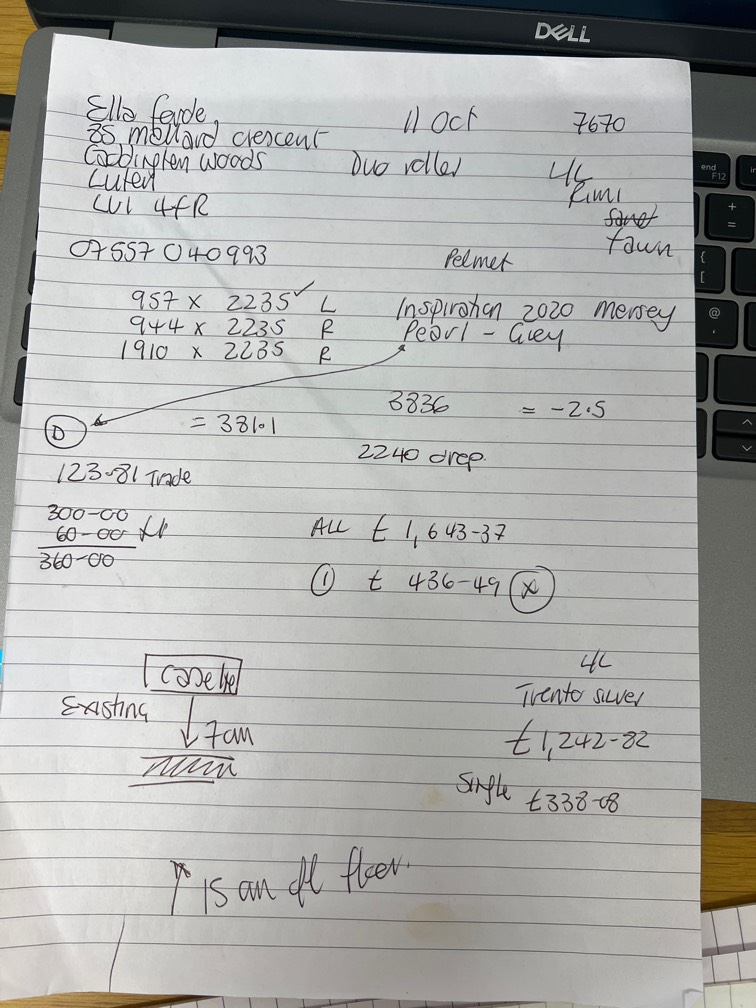 DELL
Ella feyde,
35 mollard crescent
Coddington woods
Luten
LU1 4fR
11 Oct
7670
Duo roller
4L
Rimi
fawn
07557 040993
Pelmet
957 x 2235 ✓ L
944 x 2235 R
1910 x 2235 R
Inspiration 2020 Mersey
Pearl - Grey
3836 = -2.5
D
= 3811
2240 drop
123-81 Trade
300-00
60-00
360-00
ALL £ 1,643-37
① £ 436-49 x
Existing
7cm
4L
Trento silver
£1,242-82
Single £338-08
↑ 15 cm floor.
end
F12
+
=
{
[
@